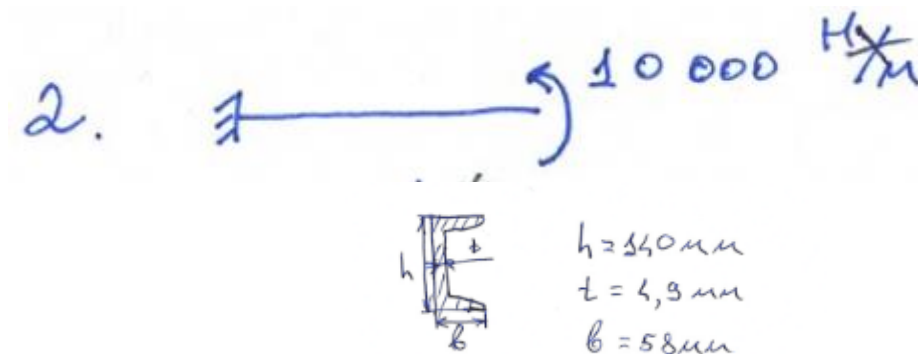 2.
10 000 Н/м
h
t
b
h = 140 мм
t = 4,9 мм
b = 58 мм